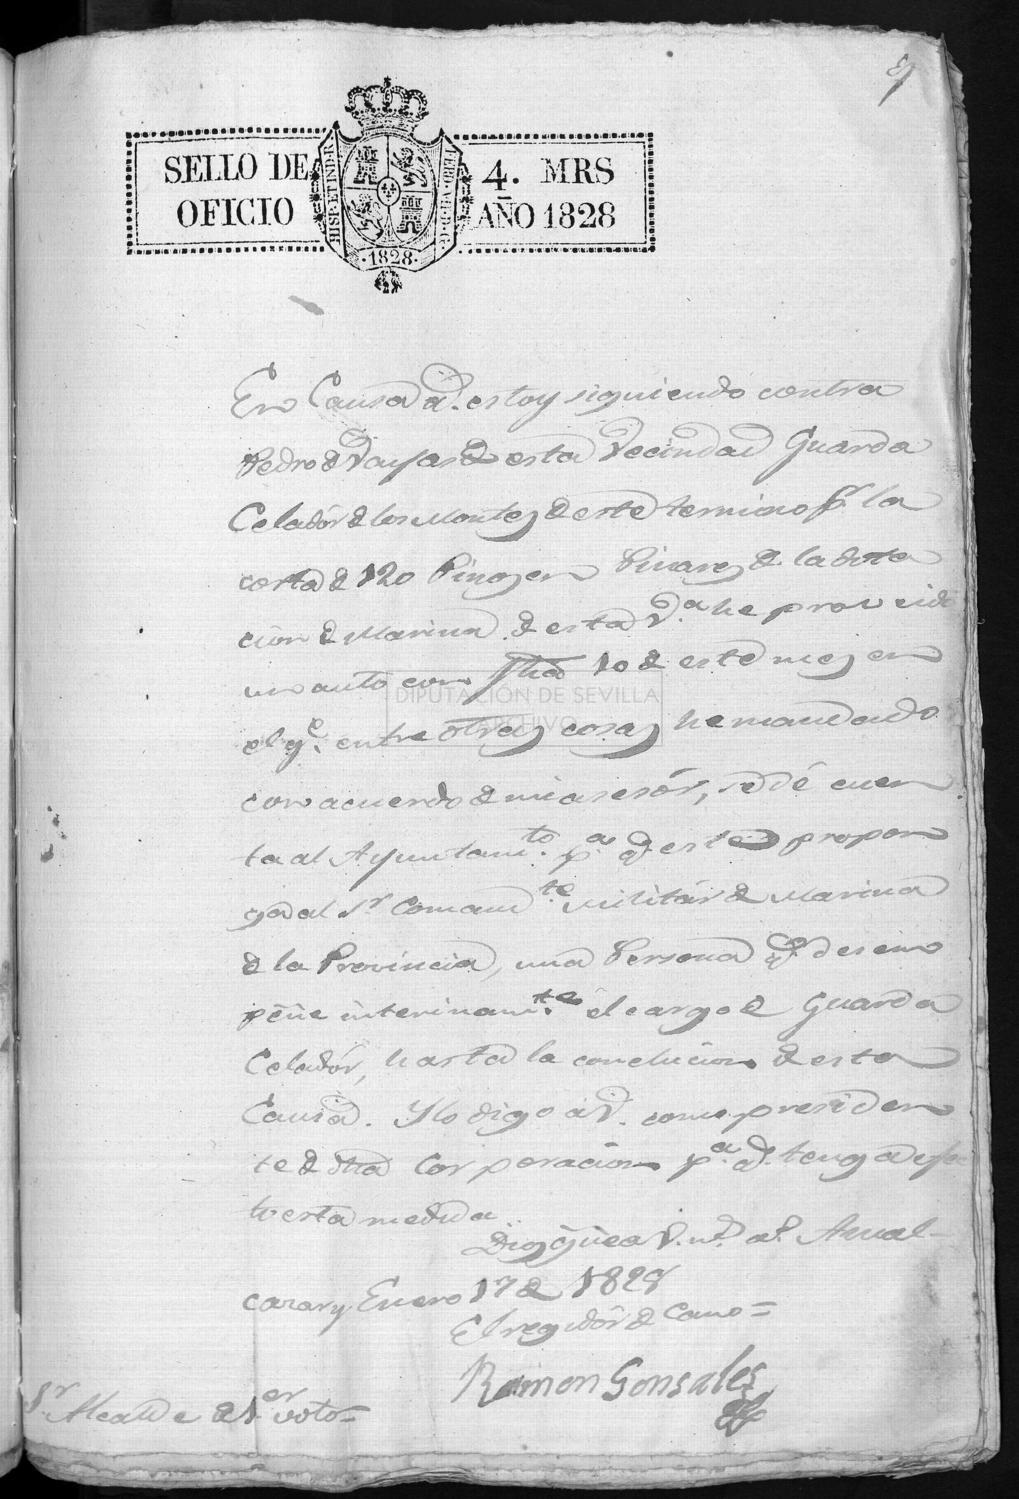 SELLO DE 4. MRS
OFICIO AÑO 1828
HISP. ET IND. R.
·1828·
En Causa q.e estoy siguiendo contra
Pedro de Vayas de esta Vecindad Guarda
Celadór de los Montes de este termino p.r la
corta de 120 Pinos en Pinares de la dota
cion de Marina de esta V.a he proveido
un auto con fha 10 de este mes en
el q.e entre otras cosas he mandado
con acuerdo de mi asesór, se dé cuen
ta al Ayuntam.to p.a q.e este propon
ga al S.r Comand.te Militár de Marina
de la Provincia, una Persona q.e desem
peñe interinam.te el cargo de Guarda
Celadór, hasta la conclucion de esta
Causa. Y lo digo a V. como presiden
te de dha Corporacion p.a q.e tenga efec
to esta medida
Dios gûe a V. m.s a.s Aznal
cazar y Enero 17 de 1828
El regidór de Cano =
Ramon Gonsales
S.r Alcalde de 1.er voto =
DIPUTACIÓN DE SEVILLA
ARCHIVO